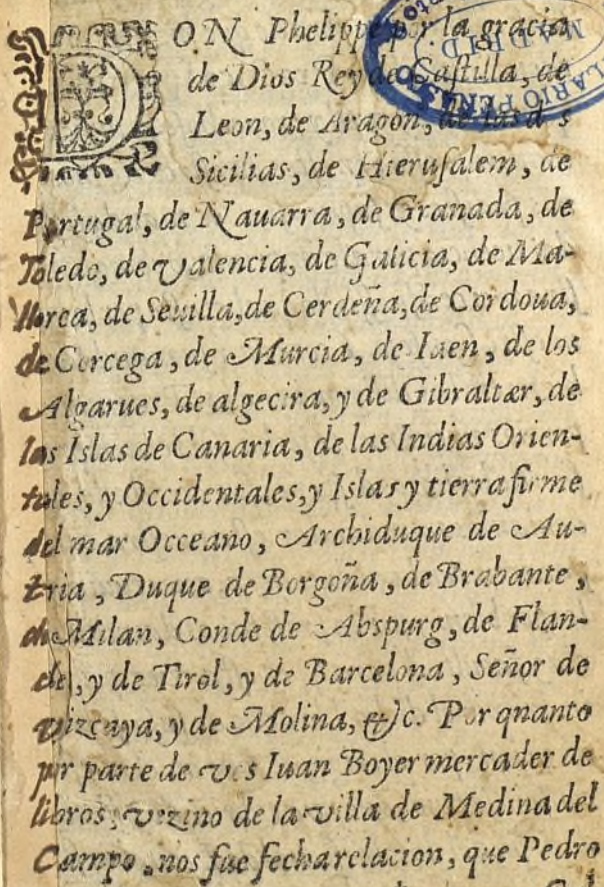 DON Phelippe por la gracia
de Dios Rey de Castilla, de
Leon, de Aragon, de las dos
Sicilias, de Hierusalem, de
Portugal, de Nauarra, de Granada, de
Toledo, de valencia, de Galicia, de Ma-
llorca, de Seuilla, de Cerdeña, de Cordoua,
de Corcega, de Murcia, de Iaen, de los
Algarues, de algecira, y de Gibraltar, de
las Islas de Canaria, de las Indias Orien-
tales, y Occidentales, y Islas y tierra firme
del mar Occeano, Archiduque de Au-
tria, Duque de Borgoña, de Brabante,
de Milan, Conde de Abspurg, de Flan-
des, y de Tirol, y de Barcelona, Señor de
vizcaya, y de Molina, &c. Por qnanto
por parte de vos Iuan Boyer mercader de
libros, vezino de la villa de Medina del
Campo, nos fue fecha relacion, que Pedro
MADRID